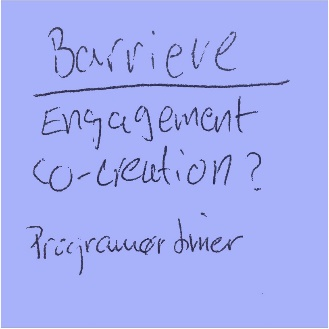 Barriere
Engagement
co-creation?
Programør timer